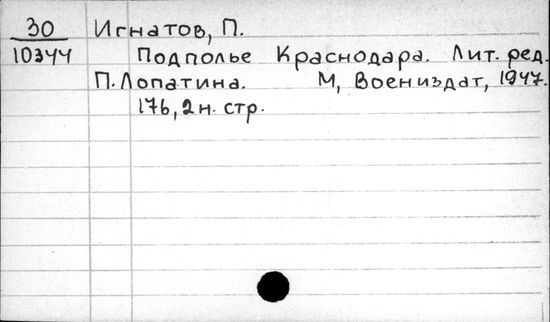 30 Игнатов, П.
10344 Подполье Краснодара. Лит. ред.
П. Лопатина. М, Воениздат, 1947.
176, 2 н. стр.